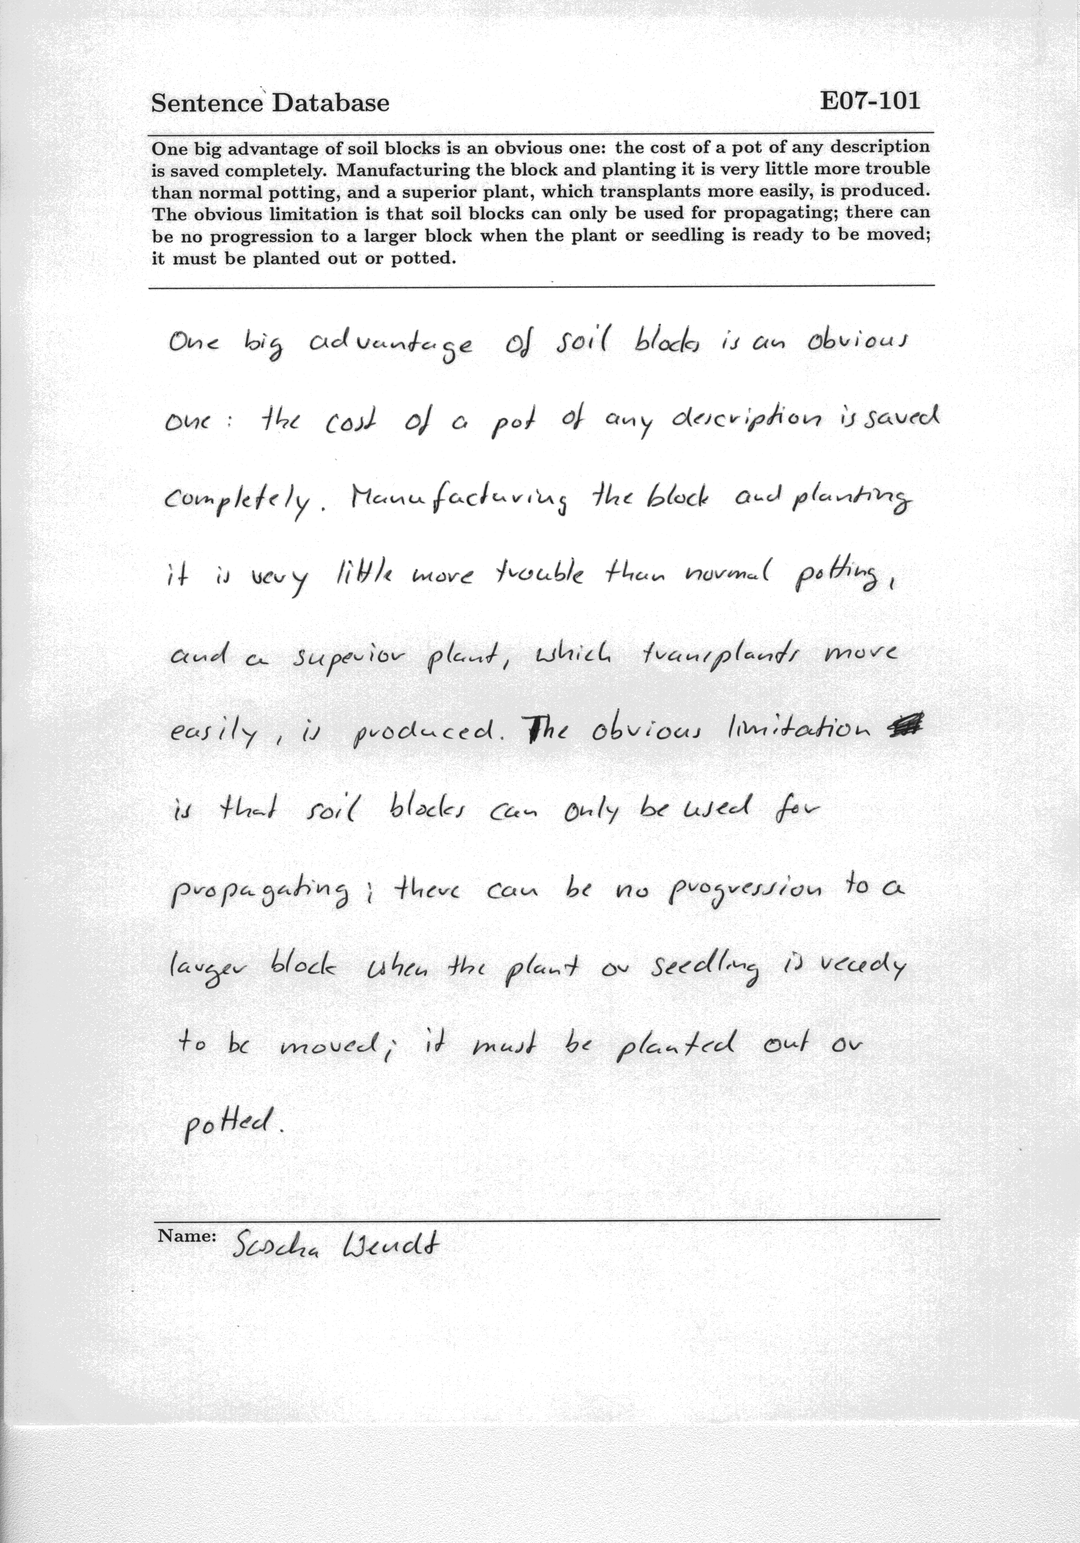 Sentence Database
E07-101
One big advantage of soil blocks is an obvious one: the cost of a pot of any description
is saved completely. Manufacturing the block and planting it is very little more trouble
than normal potting, and a superior plant, which transplants more easily, is produced.
The obvious limitation is that soil blocks can only be used for propagating; there can
be no progression to a larger block when the plant or seedling is ready to be moved;
it must be planted out or potted.
One big advantage of soil blocks is an obvious
one : the cost of a pot of any description is saved
completely. Manufacturing the block and planting
it is very little more trouble than normal potting,
and a superior plant, which transplants more
easily, is produced. The obvious limitation
is that soil blocks can only be used for
propagating ; there can be no progression to a
larger block when the plant or seedling is ready
to be moved; it must be planted out or
potted.
Name: Sascha Wendt